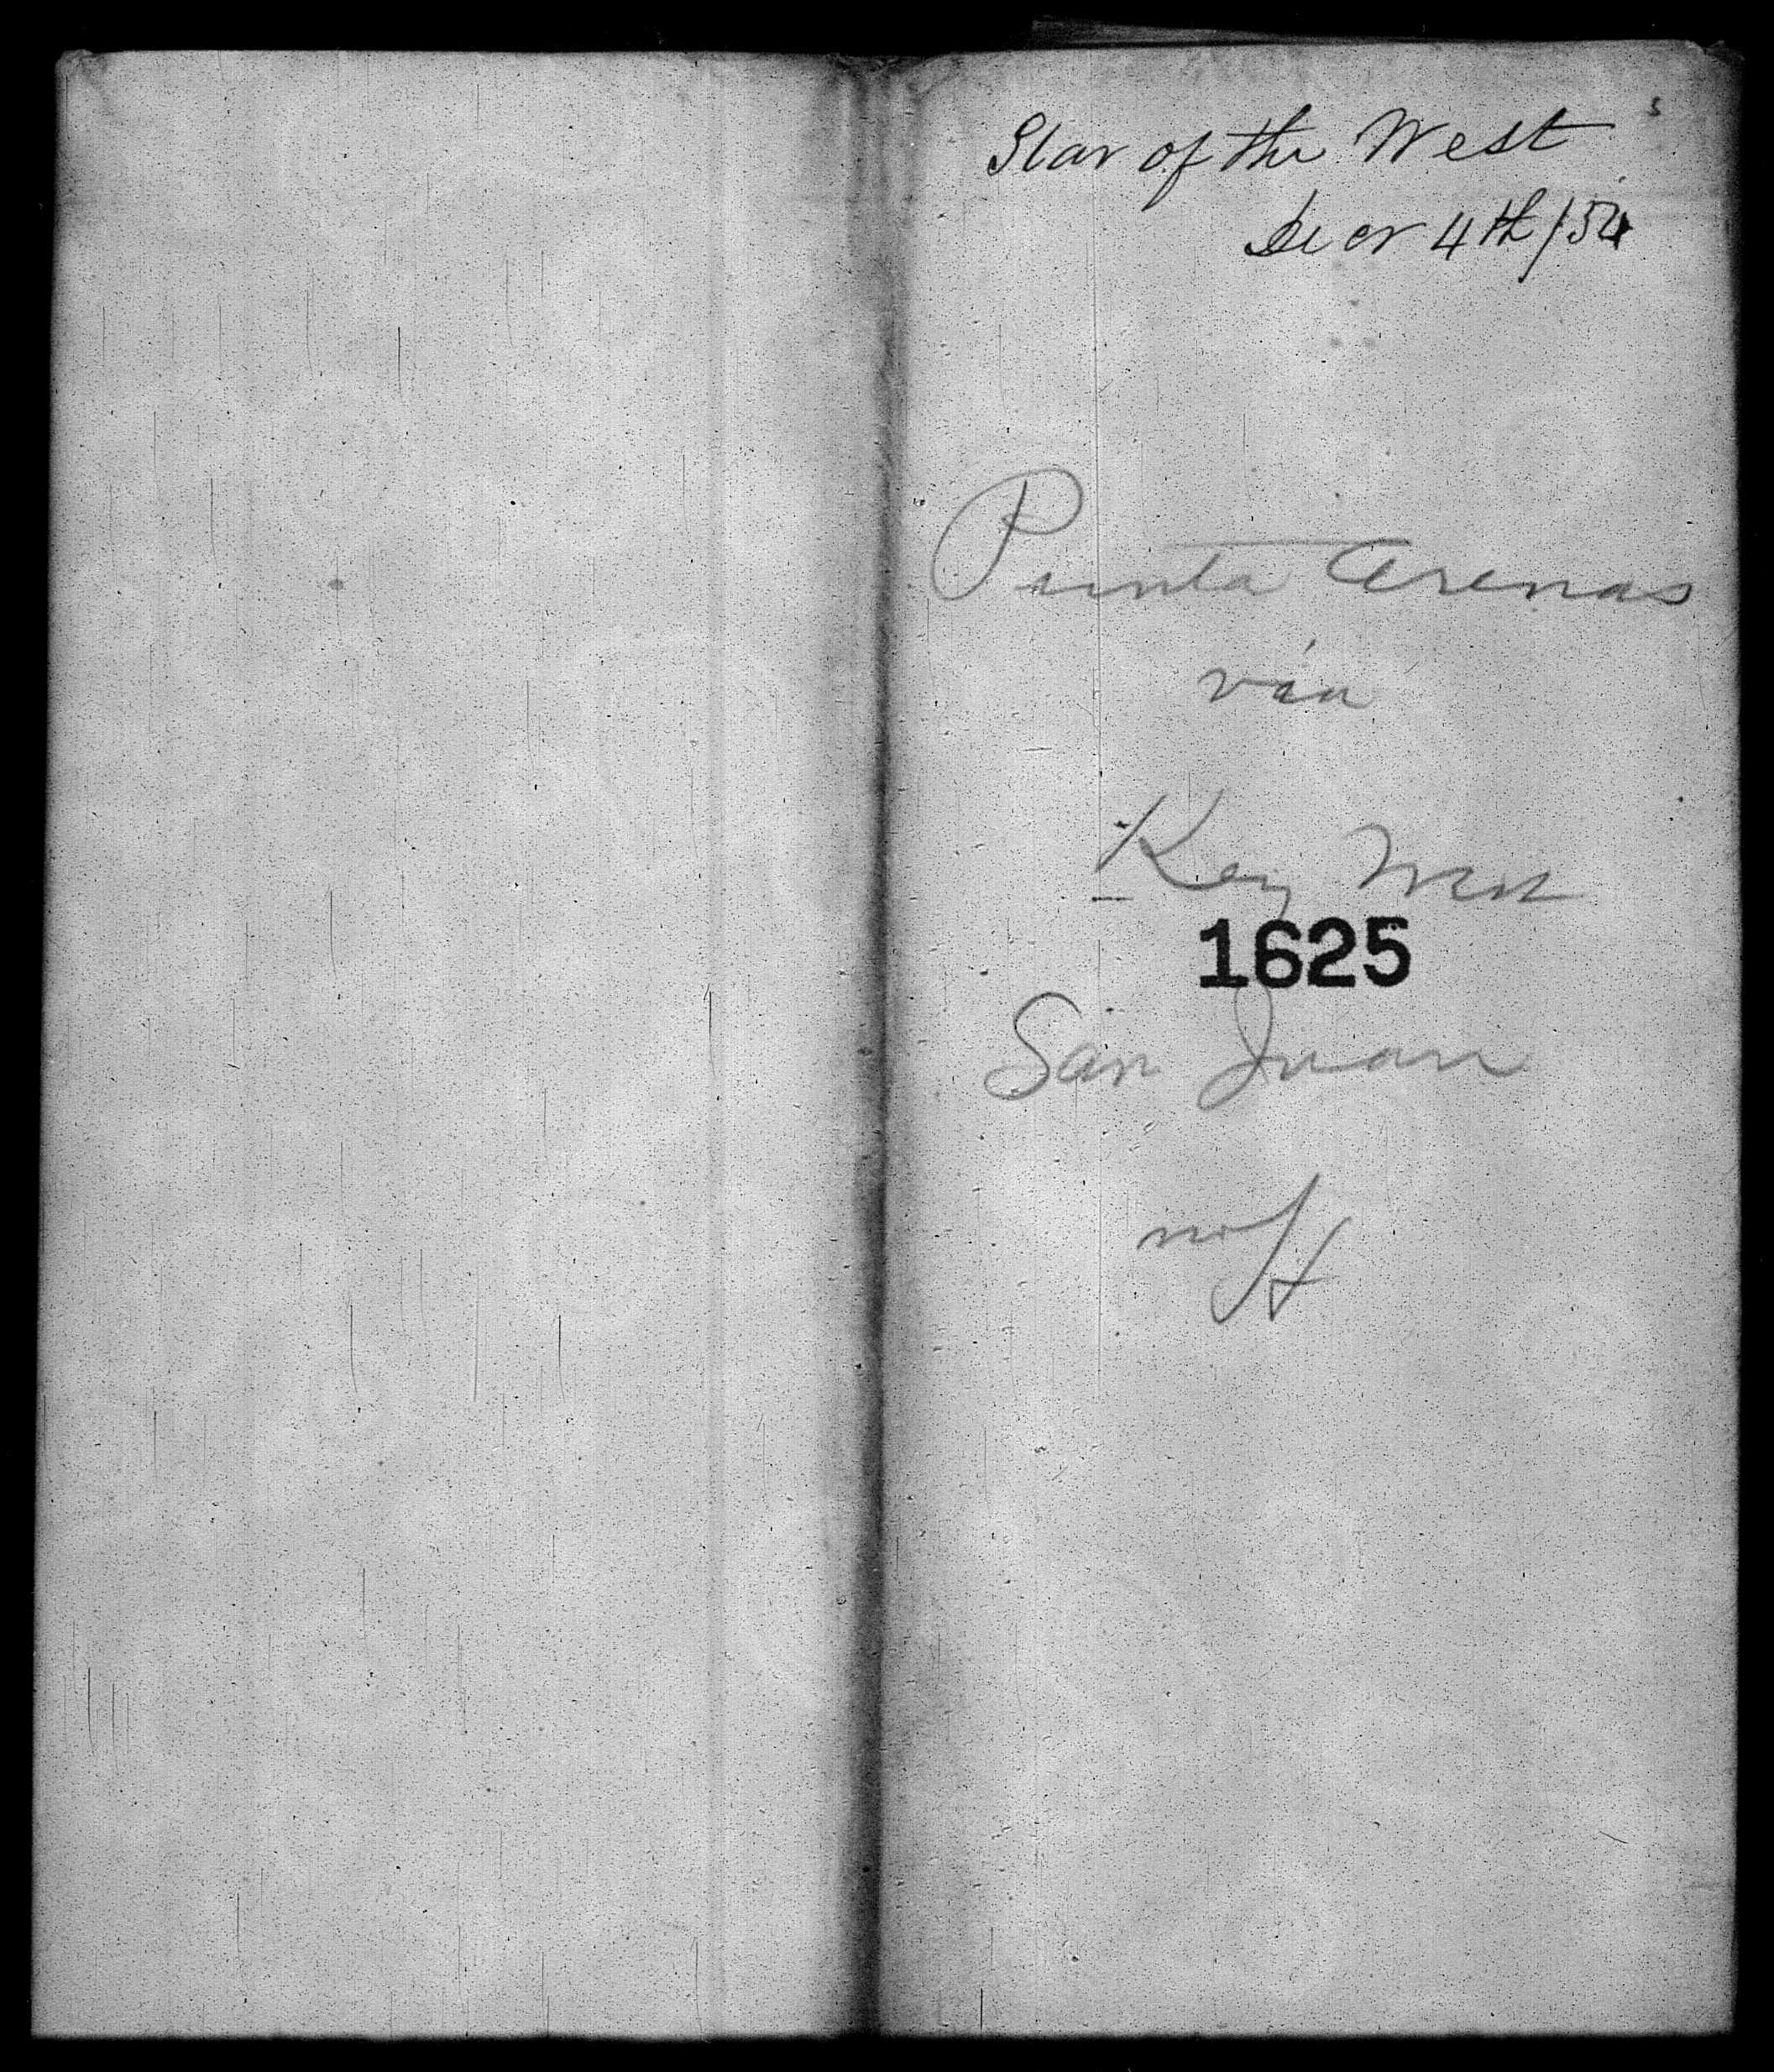 Star of the West
Decr 4th /54
Punta Arenas
via
Key West
1625
San Juan